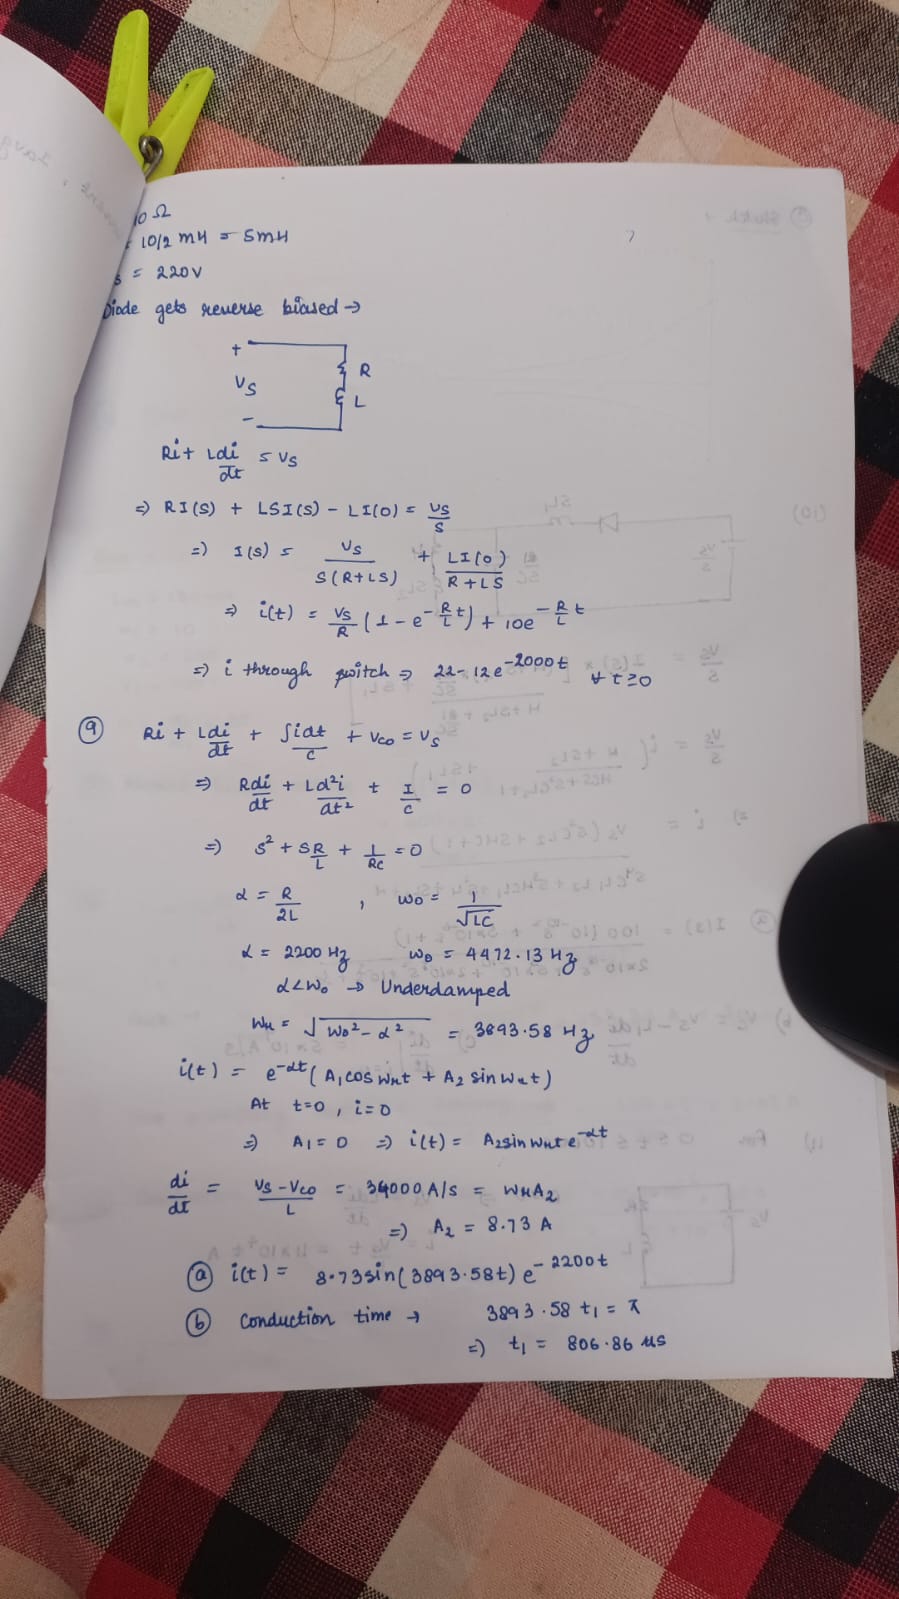 10 Ω
= 10/2 mH = 5mH
s = 220V
Diode gets reverse biased →
+
Vs
R
L
-
Ri + L di/dt = Vs
⇒ RI(s) + LSI(s) - LI(0) = Vs/s
⇒ I(s) = Vs/S(R+LS) + LI(0)/R+LS
⇒ i(t) = Vs/R (1 - e^-R/L t) + 10e^-R/L t
⇒ i through switch ⇒ 22 - 12e^-2000t ∀ t≥0
⑨ Ri + L di/dt + ∫idt/C + Vco = Vs
⇒ R di/dt + L d²i/dt² + I/C = 0
⇒ s² + S R/L + 1/RC = 0
α = R/2L , ω0 = 1/√LC
α = 2200 Hz ω0 = 4472.13 Hz
α<ω0 → Underdamped
ωr = √ω0² - α² = 3893.58 Hz
i(t) = e^-αt (A1 cos ωrt + A2 sin ωrt)
At t=0, i=0
⇒ A1 = 0 ⇒ i(t) = A2 sin ωrt e^-αt
di/dt = Vs - Vco/L = 34000 A/s = ωrA2
⇒ A2 = 8.73 A
ⓐ i(t) = 8.73 sin(3893.58t) e^-2200t
ⓑ Conduction time → 3893.58 t1 = π
⇒ t1 = 806.86 μs